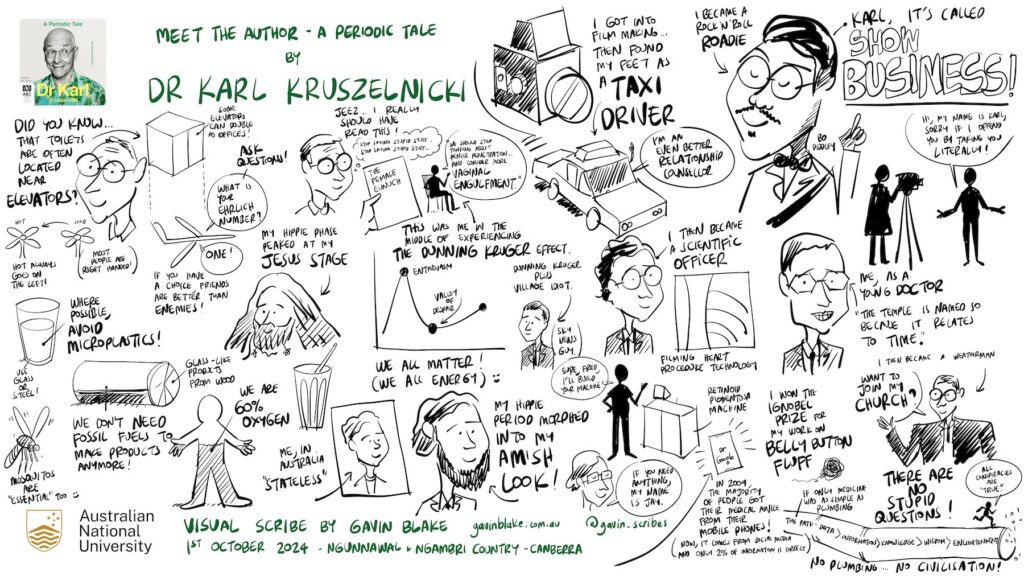 A Periodic Tale
ABC
Dr Karl
Kruszelnicki
MEET THE AUTHOR - A PERIODIC TALE
BY
DR KARL KRUSZELNICKI
DID YOU KNOW...
THAT TOILETS
ARE OFTEN
LOCATED
NEAR
ELEVATORS?
SOME
ELEVATORS
CAN DOUBLE
AS OFFICES!
ASK
QUESTIONS!
WHAT IS
YOUR
EHRLICH
NUMBER?
ONE!
HOT
COLD
HOT ALWAYS
GOES ON
THE LEFT!
MOST
PEOPLE ARE
RIGHT HANDED!
IF YOU HAVE
A CHOICE FRIENDS
ARE BETTER THAN
ENEMIES!
JEEZ... I REALLY
SHOULD HAVE
READ THIS!
STOP SAYING STUPID STUFF...
STOP SAYING STUPID STUFF...
THE
FEMALE
EUNUCH
"WE SHOULD STOP
THINKING ABOUT
PENILE PENETRATION...
AND CONSIDER MORE
VAGINAL
ENGULFMENT."
MY HIPPIE PHASE
PEAKED AT MY
JESUS STAGE
THIS WAS ME IN THE
MIDDLE OF EXPERIENCING
THE DUNNING KRUGER EFFECT.
ENTHUSIASM
VALLEY
OF
DESPAIR
DUNNING KRUGER
PLUS
VILLAGE IDIOT.
SKY
NEWS
GUY.
I GOT INTO
FILM MAKING...
THEN FOUND
MY FEET AS
A TAXI
DRIVER
I'M AN
EVEN BETTER
RELATIONSHIP
COUNSELLOR
I BECAME A
ROCK'N'ROLL
ROADIE
BO
DIDDLEY
KARL, IT'S CALLED
SHOW
BUSINESS!
HI, MY NAME IS KARL,
SORRY IF I OFFEND
YOU BY TAKING YOU
LITERALLY!
I THEN BECAME
A SCIENTIFIC
OFFICER
FILMING HEART
PROCEDURE TECHNOLOGY
ME, AS A
YOUNG DOCTOR
"THE TEMPLE IS NAMED SO
BECAUSE IT RELATES
TO TIME."
I THEN BECAME A WEATHERMAN
WHERE
POSSIBLE,
AVOID
MICROPLASTICS!
USE
GLASS
OR
STEEL!
GLASS-LIKE
PRODUCTS
FROM WOOD
WE DON'T NEED
FOSSIL FUELS TO
MAKE PRODUCTS
ANYMORE!
MOSQUITOS
ARE
"ESSENTIAL" TOO
WE ARE
60%
OXYGEN
WE ALL MATTER!
(WE ALL ENERGY)
ME, IN
AUSTRALIA
"STATELESS"
MY HIPPIE
PERIOD MORPHED
INTO MY
AMISH
LOOK!
SURE, FRED,
I'LL BUILD
YOUR
MACHINE!
RETINOID
PIGMENTOSA
MACHINE
IF YOU NEED
ANYTHING,
MY NAME
IS JAY.
Dr
Google
IN 2009
THE MAJORITY
OF PEOPLE GOT
THEIR MEDICAL ADVICE
FROM THEIR
MOBILE PHONES!
(NOW, IT COMES FROM SOCIAL MEDIA
AND ONLY 2% OF INFORMATION IS CORRECT)
I WON THE
IGNOBEL
PRIZE FOR
MY WORK ON
BELLY BUTTON
FLUFF
WANT TO
JOIN MY
CHURCH?
THERE ARE
NO
STUPID
QUESTIONS!
ALL
CONSPIRACIES
ARE
"TRUE"!
IF ONLY MEDICINE
WAS AS SIMPLE AS
PLUMBING
THE PATH - DATA > INFORMATION > KNOWLEDGE > WISDOM > ENLIGHTENMENT
NO PLUMBING... NO CIVILISATION!
Australian
National
University
VISUAL SCRIBE BY GAVIN BLAKE gavinblake.com.au @gavin_scribes
1ST OCTOBER 2024 - NGUNNAWAL & NGAMBRI COUNTRY - CANBERRA